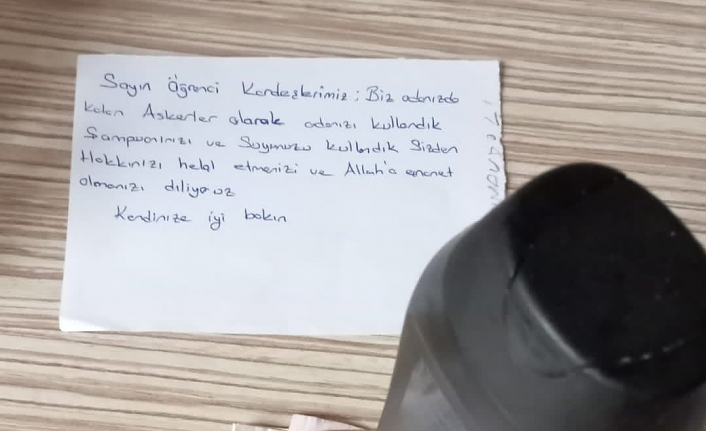 Sayın Öğrenci Kardeşlerimiz; Biz odanızda
kalan Askerler olarak odanızı kullandık
Şampuanınızı ve Suyunuzu kullandık Sizden
Hakkınızı helal etmenizi ve Allah'a emanet
olmanızı diliyoruz
Kendinize iyi bakın